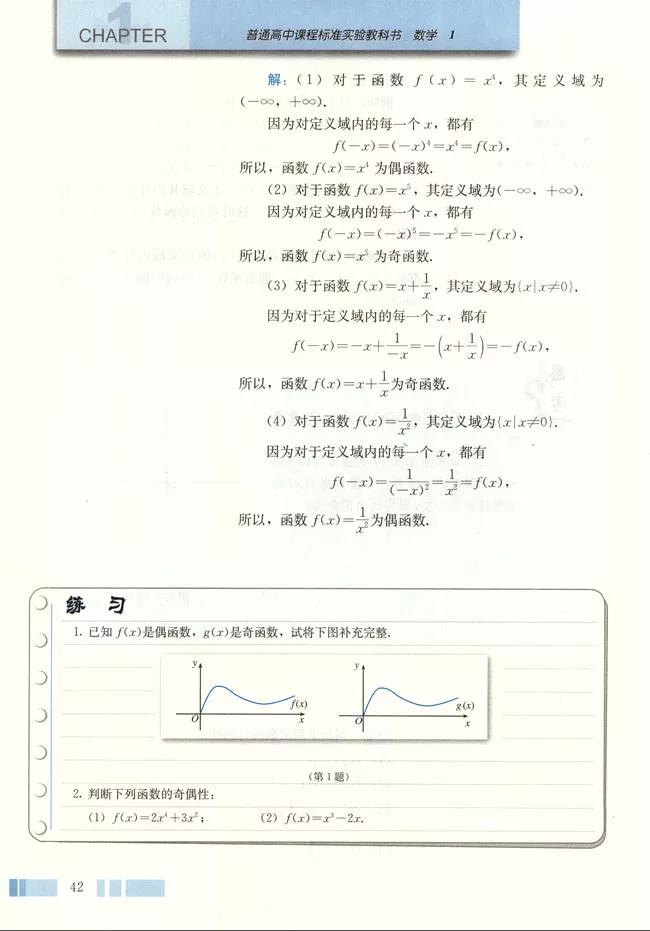 1
CHAPTER
普通高中课程标准实验教科书 数学 1
解：（1）对于函数 f(x)=x⁴，其定义域为
(-∞，+∞).
因为对定义域内的每一个 x，都有
f(-x)=(-x)⁴=x⁴=f(x)，
所以，函数 f(x)=x⁴ 为偶函数.
（2）对于函数 f(x)=x⁵，其定义域为(-∞，+∞).
因为对定义域内的每一个 x，都有
f(-x)=(-x)⁵=-x⁵=-f(x)，
所以，函数 f(x)=x⁵ 为奇函数.
（3）对于函数 f(x)=x+1/x，其定义域为{x|x≠0}.
因为对于定义域内的每一个 x，都有
f(-x)=-x+1/(-x)=-(x+1/x)=-f(x)，
所以，函数 f(x)=x+1/x为奇函数.
（4）对于函数 f(x)=1/x²，其定义域为{x|x≠0}.
因为对于定义域内的每一个 x，都有
f(-x)=1/(-x)²=1/x²=f(x)，
所以，函数 f(x)=1/x²为偶函数.
练 习
1. 已知 f(x)是偶函数，g(x)是奇函数，试将下图补充完整.
y f(x) O x
y g(x) O x
（第1题）
2. 判断下列函数的奇偶性：
（1）f(x)=2x⁴+3x²； （2）f(x)=x³-2x.
42